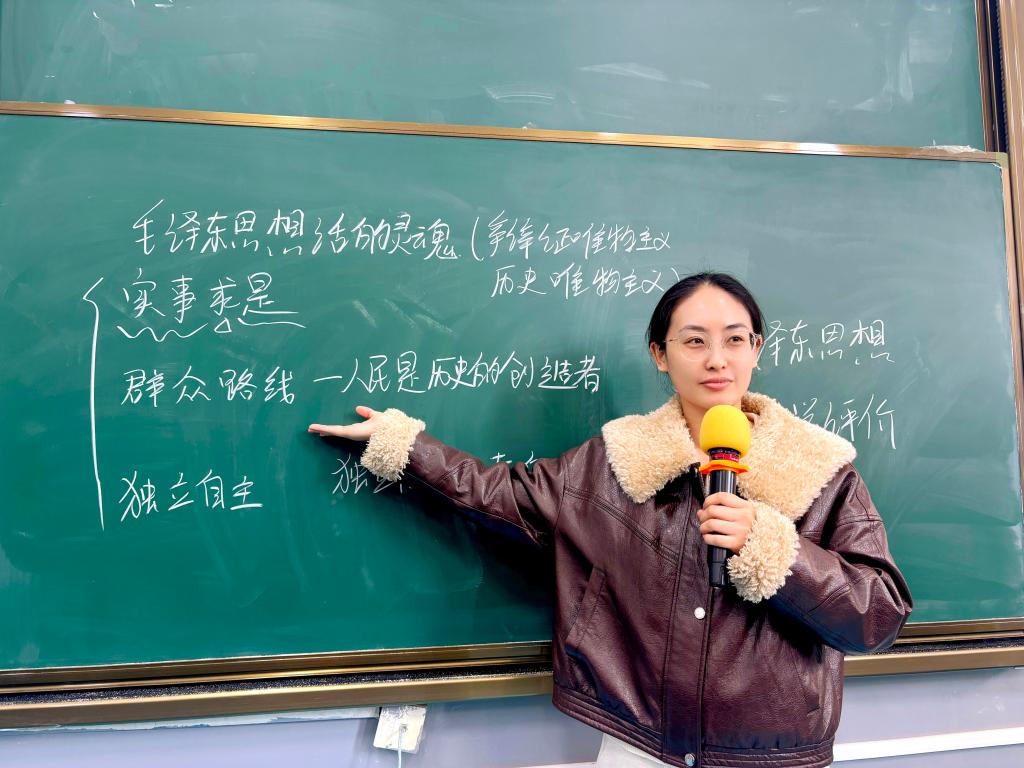 毛泽东思想活的灵魂(辩证唯物主义
历史唯物主义)
实事求是
泽东思想
群众路线 —人民是历史的创造者
评价
独立自主
独